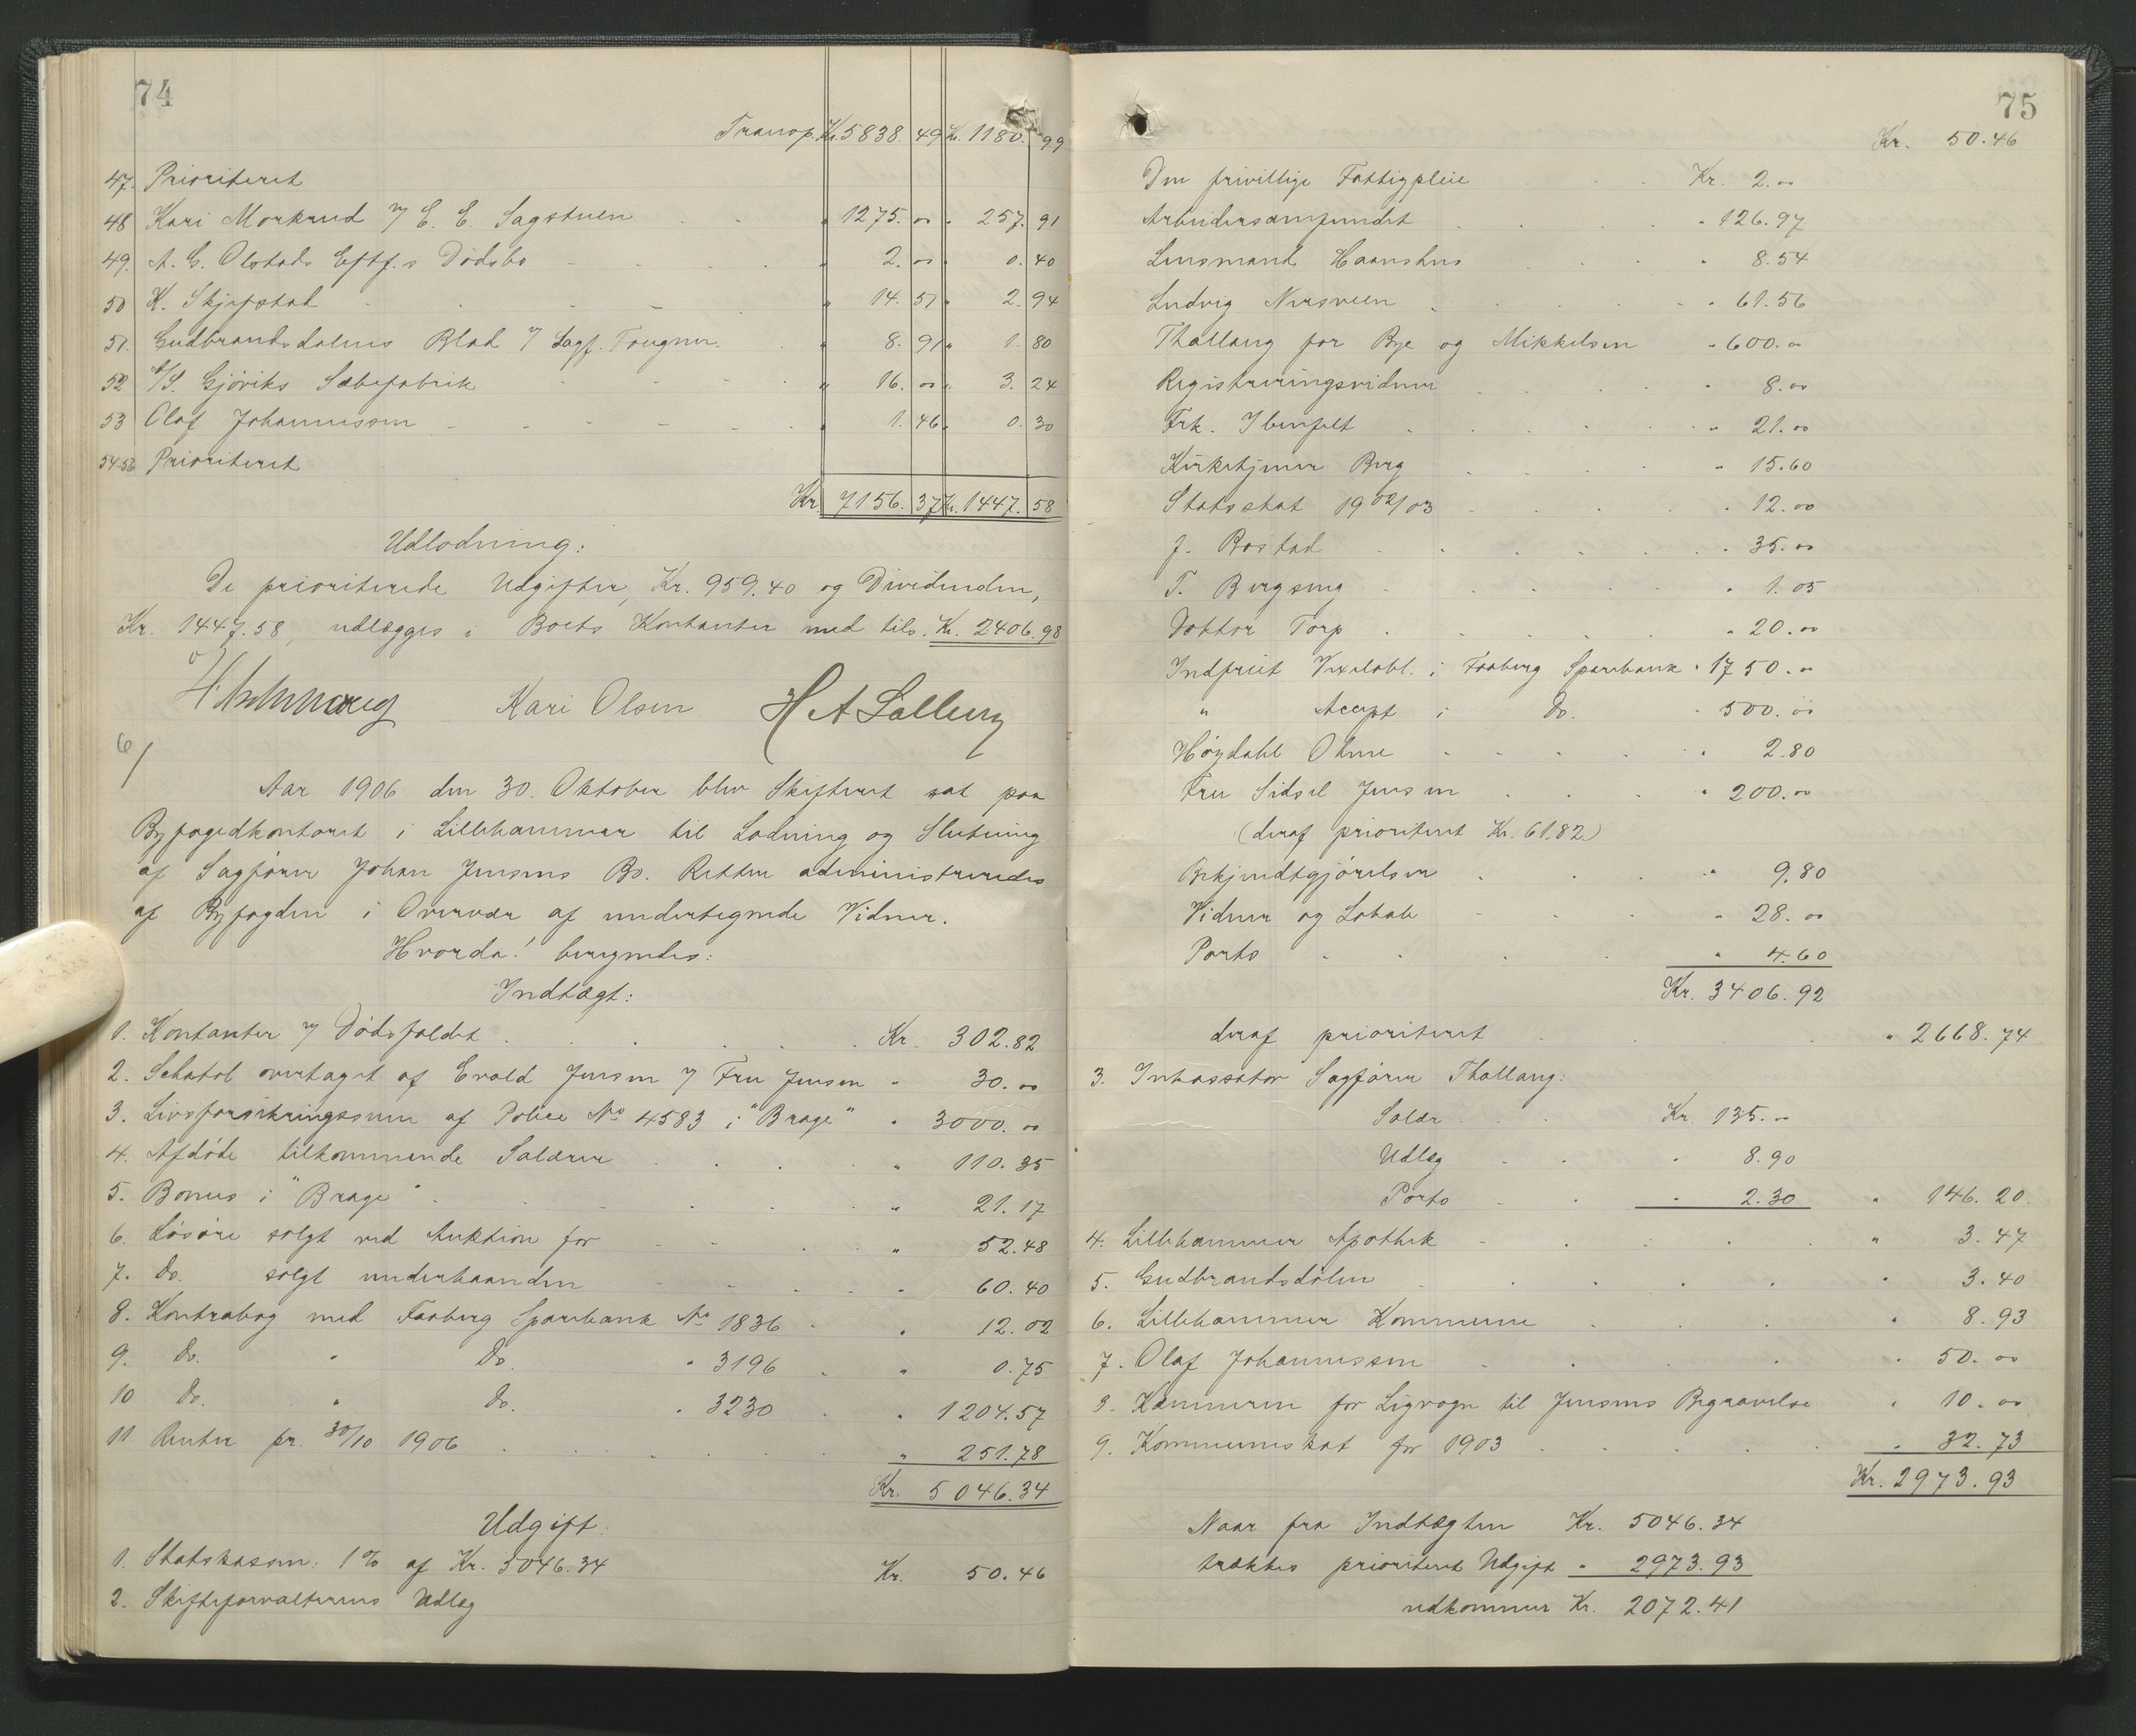 74
Transp. Kr. 5838. 49 Kr. 1180. 99
47. Prioriteret
48 Kari Morkrud v/ E. E. Sagstuen " 1275. 00 " 257. 91
49. A. G. Olstads Eftf.s Dødsbo " 2. 00 " 0. 40
50 K. Skjefstad " 14. 51 " 2. 94
51. Gudbrandsdølens Blad v/ Sagf. Fougner. " 8. 91 " 1. 80
52 A/S. Gjøviks Sæbefabrik " 16. 00 " 3. 24
53 Olaf Johannessen " 1. 46 " 0. 30
54-56 Prioriteret
Kr. 7156. 37 Kr. 1447. 58
Udlodning:
De prioriterede Udgifter, Kr. 959.40 og Dividenden,
Kr. 1447.58, udlægges i Boets Kontanter med tils. Kr. 2406.98
Kari Olsen H A
6/
Aar 1906 den 30. Oktober blev Skifteret sat paa
Byfogedkontoret i Lillehammer til Lodning og Slutning
af Sagfører Johan Jensens Bo. Retten administreredes
af Byfogden i Overvær af undertegnede Vidner.
Hvorda! beregnedes:
Indtægt:
1. Kontanter v/ Dødsfaldet Kr. 302.82
2. Schatol overtaget af Evald Jensen v/ Fru Jensen " 30.00
3. Livsforsikringssum af Police No 4583 i "Brage" " 3000.00
4. Afdøde tilkommende Salærer " 110.35
5. Bonus i "Brage" " 21.17
6. Løsøre solgt ved Auktion for " 52.48
7. Do. solgt underhaanden " 60.40
8. Kontrabog med Faaberg Sparebank No 1836 " 12.02
9. Do. " Do. " 3196 " 0.75
10 Do. " Do. " 3230 " 1204.57
11 Renter pr. 30/10 1906 " 251.78
Kr. 5046.34
Udgift.
1. Statskassen: 1% af Kr. 5046.34 Kr. 50.46
2. Skifteforvalterens Udlæg
75
Kr. 50.46
Den frivillige Fattigpleie Kr. 2.00
Arbeidersamfundet " 126.97
Lensmand Haanshus " 8.54
Ludvig Nersveen " 61.56
Thallaug for Bye og Mikkelsen " 600.00
Registreringsvidner " 8.00
Frk. Ibenfelt " 21.00
Kirketjener Berg " 15.60
Statsskat 1902/03 " 12.00
J. Bostad " 35.00
T. Bergseng " 1.05
Doktor Torp " 20.00
Indfriet Vexelobl. i Faaberg Sparebank " 1750.00
" Accept i Do. " 500.00
Høydahl Ohme " 2.80
Fru Sidsel Jensen " 200.00
(deraf prioriteret Kr. 61.82)
Bekjendtgjørelser " 9.80
Vidner og Lokale " 28.00
Porto " 4.60
Kr. 3406.92
deraf prioriteret " 2668.74
3. Inkassator Sagfører Thallaug:
Salær Kr. 135.00
Udlæg " 8.90
Porto " 2.30 " 146.20.
4. Lillehammer Apothek " 3.47
5. Gudbrandsdølen " 3.40
6. Lillehammer Kommune " 8.93
7. Olaf Johannessen " 50.00
8. Kæmneren for Ligvogn til Jensens Begravelse " 10.00
9. Kommuneskat for 1903 " 32.73
Kr. 2973.93
Naar fra Indtægten Kr. 5046.34
trækkes prioriteret Udgift " 2973.93
udkommer Kr. 2072.41